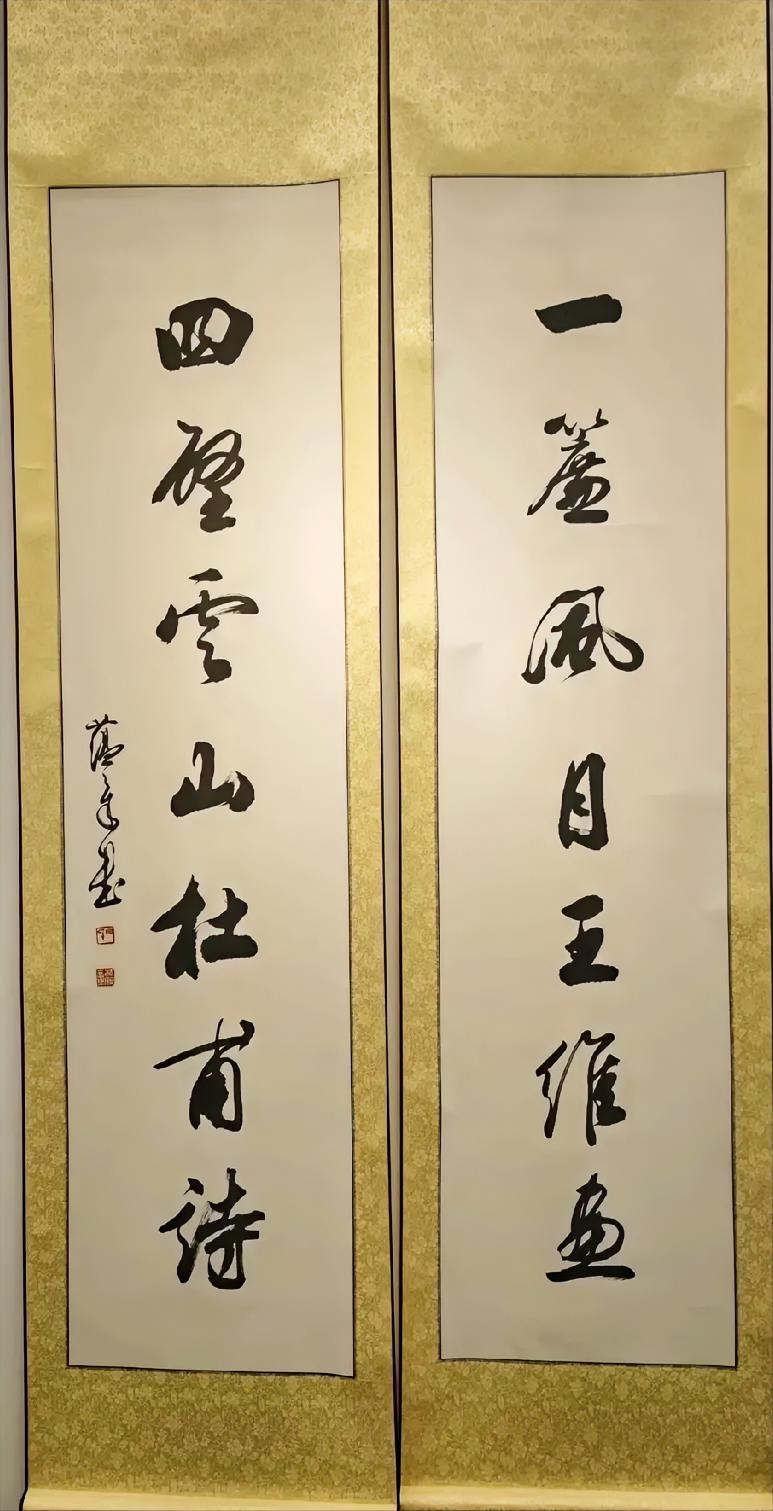 一簾風月王維畫
四壁雲山杜甫詩